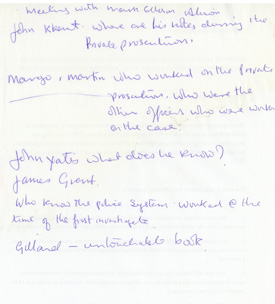 Meeting with
John where are his notes during the
Private prosecution.
Mango, martin who worked on the Private
prosecution. Who were the
other officers who were
on the case.
John Yates what does he know?
James Grant.
Who know the police System worked @ the
time of the first
Gilland – untouchable book